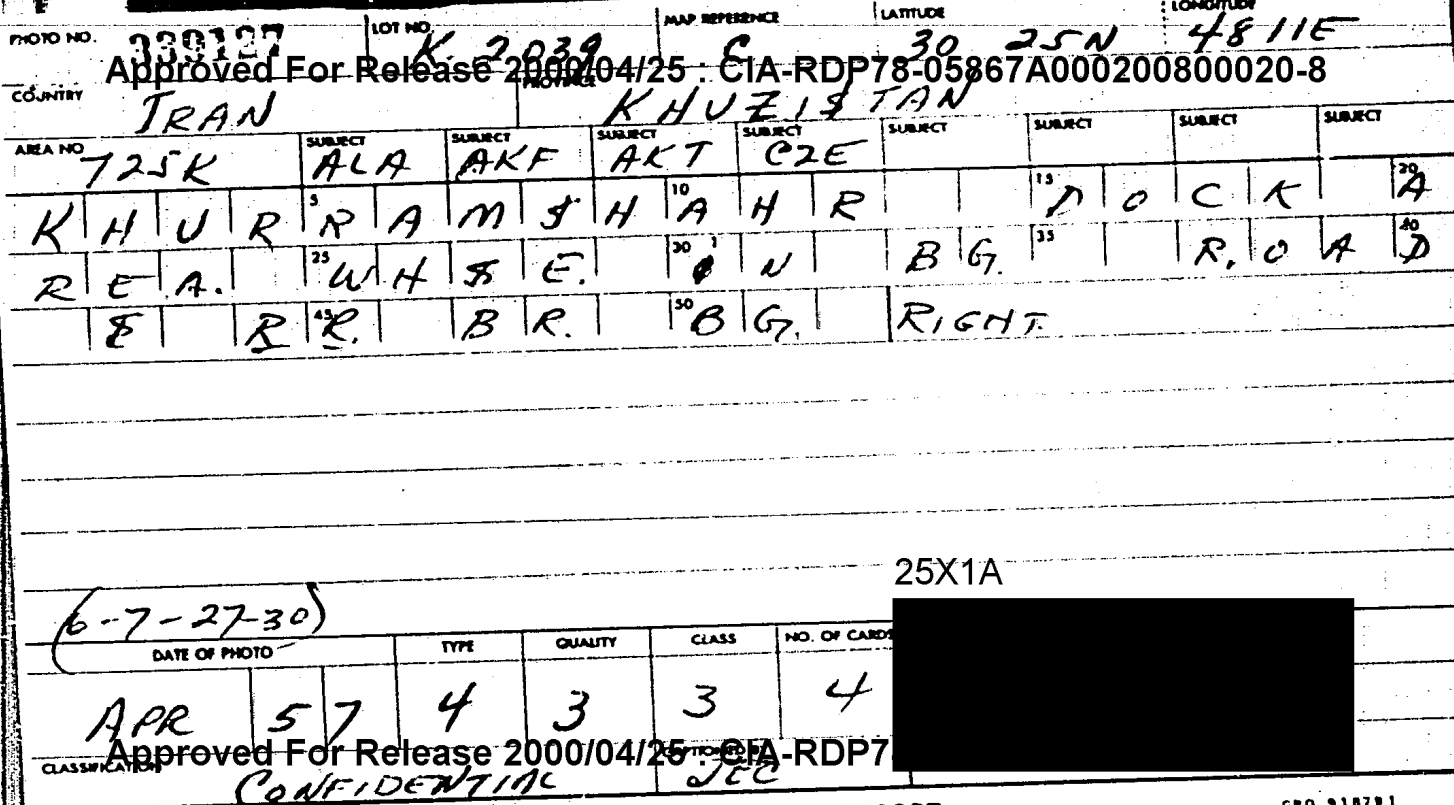 PHOTO NO. 339127 LOT NO. K 2039 MAP REFERENCE C LATITUDE 30 25N LONGITUDE 48 11E
Approved For Release 2000/04/25 : CIA-RDP78-05867A000200800020-8
COUNTRY IRAN PROVINCE KHUZISTAN
AREA NO 725K SUBJECT ALA SUBJECT AKF SUBJECT AKT SUBJECT C2E SUBJECT SUBJECT SUBJECT SUBJECT
5 10 15 20
KHURRAMSHAHR DOCK A
25 30 35 40
REA. WHSE. IN BG. ROAD
45 50
& RR. BR. BG. RIGHT.
25X1A
(6-7-27-30)
DATE OF PHOTO TYPE QUALITY CLASS NO. OF CARDS
APR 57 4 3 3 4
Approved For Release 2000/04/25 : CIA-RDP7
CLASSIFICATION CONFIDENTIAL JEC
GPO 918791